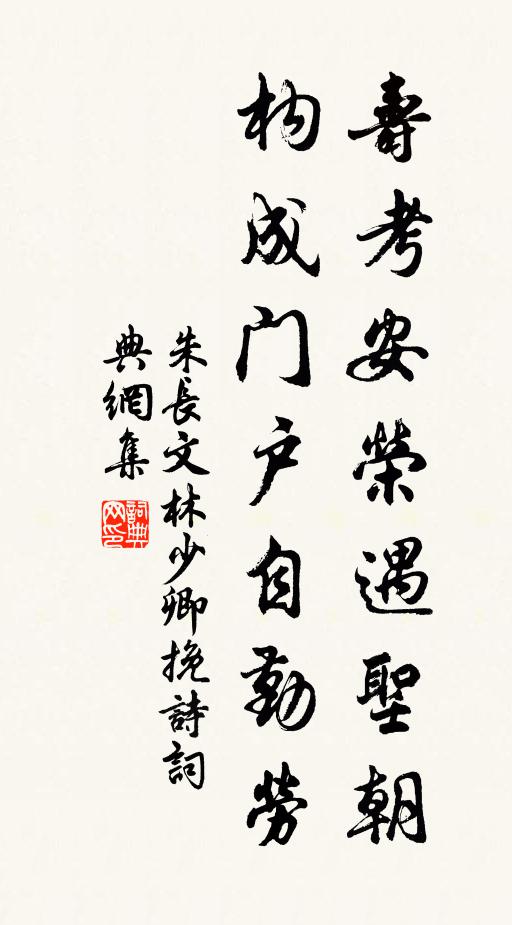 壽考安榮遇聖朝
构成门户自勤勞
朱長文林少卿挽詩詞
典網集
詞典网印